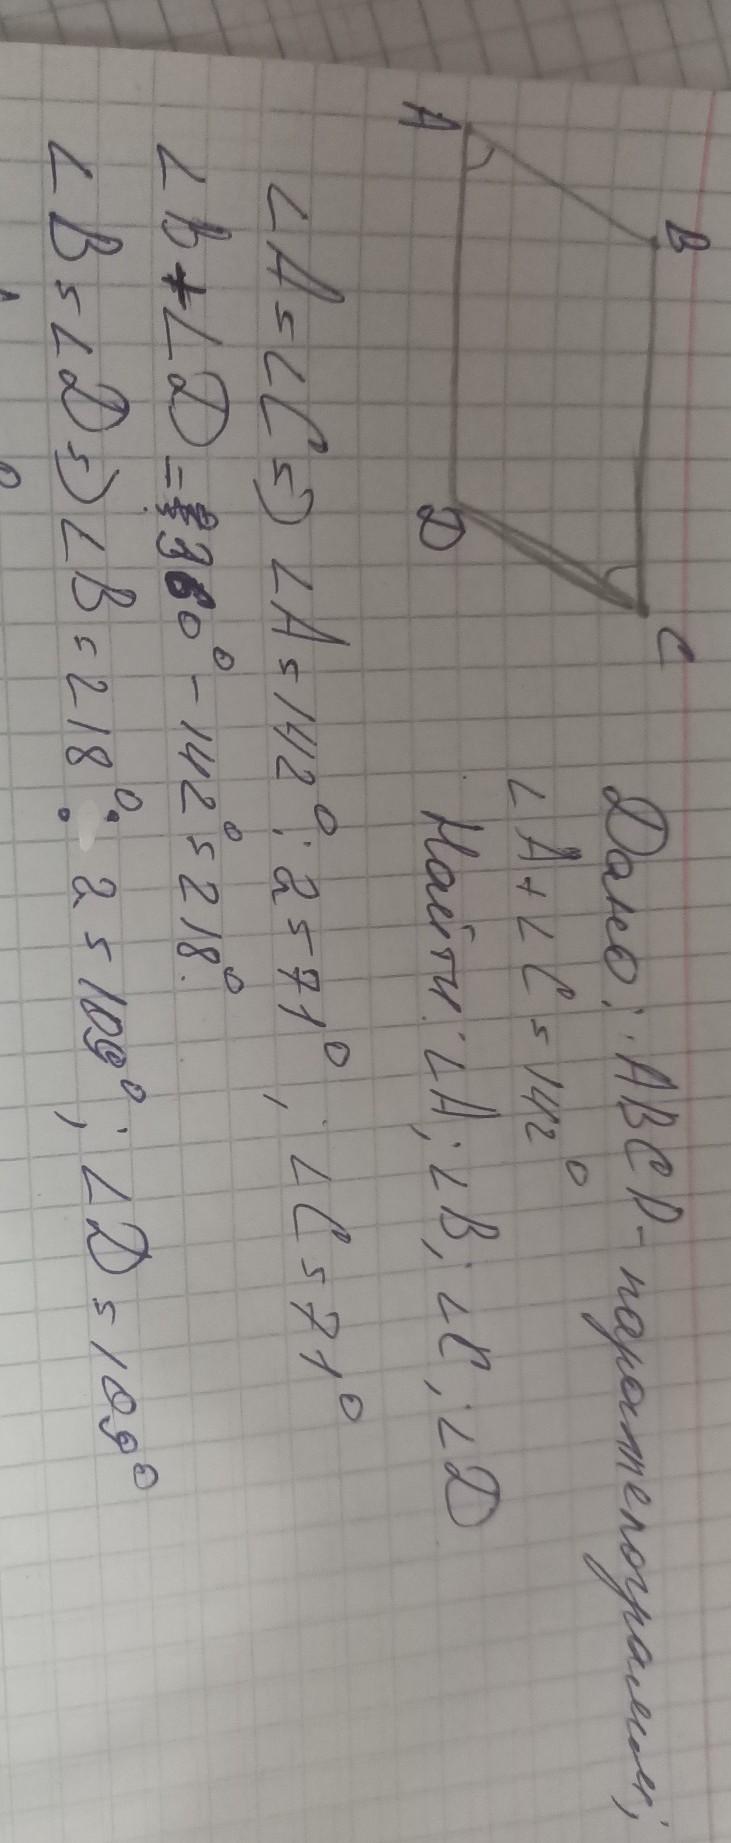 B
C
A
D
Дано: ABCD - параллелограмм;
∠A+∠C=142°
Найти: ∠A; ∠B; ∠C; ∠D
∠A=∠C => ∠A=142°:2=71°; ∠C=71°
∠B+∠D=360°-142°=218°
∠B=∠D => ∠B=218°:2=109°; ∠D=109°